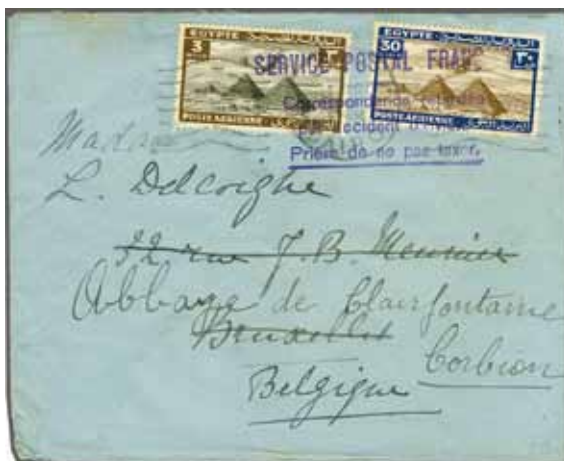 EGYPTE
3
POSTE AERIENNE
EGYPTE
30
٣٠
POSTE AERIENNE
SERVICE POSTAL FRANC
Correspondance retardée
accident d'avion
Prière de ne pas taxer.
Madame
L. Delcoighe
32 rue J. B. Meunier
Abbaye de Clairfontaine
Bruxelles
Corbion
Belgique